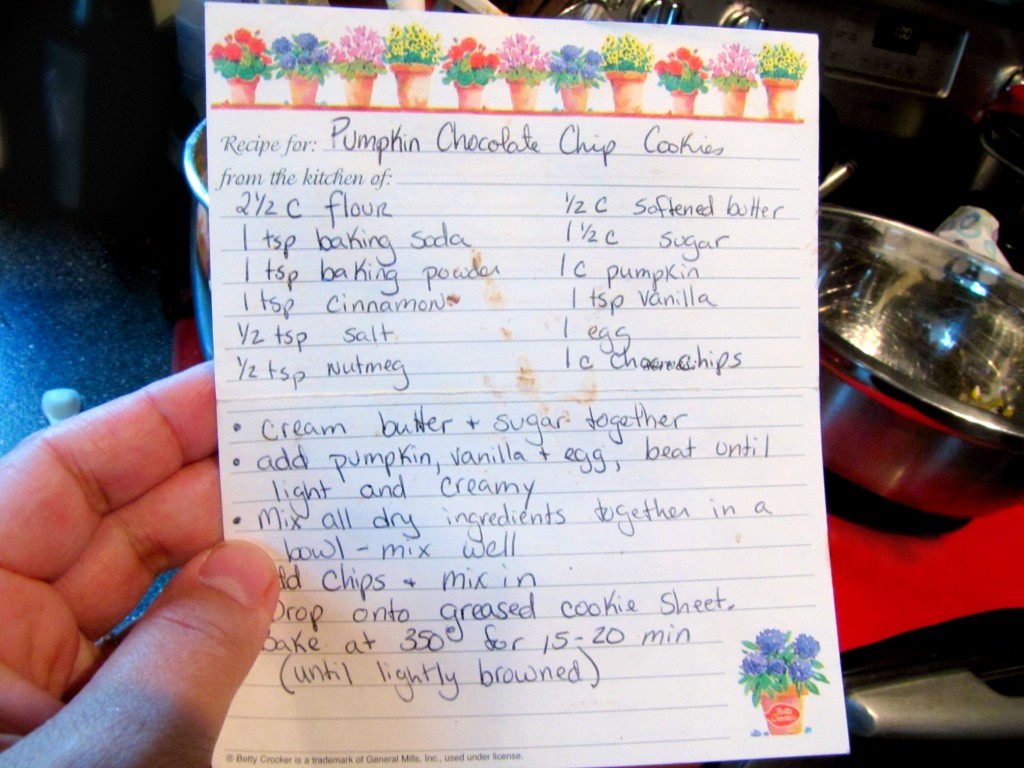 Recipe for: Pumpkin Chocolate Chip Cookies
from the kitchen of:
2 1/2 C flour
1 tsp baking soda
1 tsp baking powder
1 tsp cinnamon
1/2 tsp salt
1/2 tsp nutmeg
1/2 C softened butter
1 1/2 C sugar
1 C pumpkin
1 tsp vanilla
1 egg
1 C chips
• cream butter + sugar together
• add pumpkin, vanilla + egg, beat until
light and creamy
• Mix all dry ingredients together in a
bowl - mix well
dd chips + mix in
Drop onto greased cookie sheet.
bake at 350° for 15-20 min
(until lightly browned)
Betty Crocker
® Betty Crocker is a trademark of General Mills, Inc., used under license.